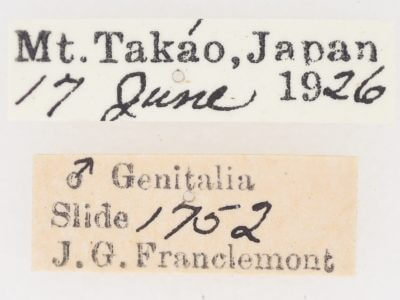 Mt. Takáo, Japan
17 June 1926
♂ Genitalia
Slide 1752
J. G. Franclemont